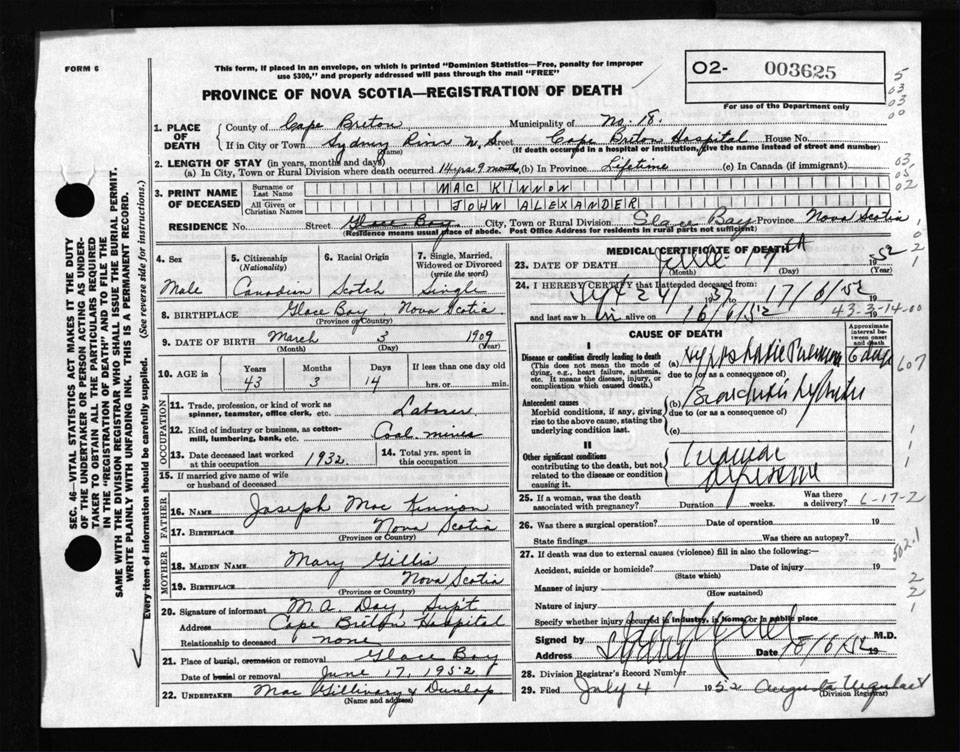 FORM 6
This form, if placed in an envelope, on which is printed "Dominion Statistics—Free, penalty for improper
use $300," and properly addressed will pass through the mail "FREE"
02- 003625
For use of the Department only
PROVINCE OF NOVA SCOTIA—REGISTRATION OF DEATH
1. PLACE OF DEATH
County of Cape Breton Municipality of No. 18.
If in City or Town Sydney River N. Street Cape Breton Hospital House No.
(Name) (If death occurred in a hospital or institution, give the name instead of street and number)
2. LENGTH OF STAY (in years, months and days)
(a) In City, Town or Rural Division where death occurred 14 yrs 9 months (b) In Province Lifetime (c) In Canada (if immigrant)
3. PRINT NAME OF DECEASED
Surname or Last Name MAC KINNON
All Given or Christian Names JOHN ALEXANDER
RESIDENCE No. Street Glace Bay City, Town or Rural Division Glace Bay Province Nova Scotia
(Residence means usual place of abode. Post Office Address for residents in rural parts not sufficient)
4. Sex Male
5. Citizenship (Nationality) Canadian
6. Racial Origin Scotch
7. Single, Married, Widowed or Divorced (write the word) Single
8. BIRTHPLACE Glace Bay Nova Scotia
(Province or Country)
9. DATE OF BIRTH March 3 1909
(Month) (Day) (Year)
10. AGE in Years 43 Months 3 Days 14 If less than one day old hrs. or min.
OCCUPATION
11. Trade, profession, or kind of work as spinner, teamster, office clerk, etc. Laborer
12. Kind of industry or business, as cotton-mill, lumbering, bank, etc. Coal mines
13. Date deceased last worked at this occupation 1932
14. Total yrs. spent in this occupation
15. If married give name of wife or husband of deceased
FATHER
16. Name Joseph Mac Kinnon
17. Birthplace Nova Scotia
(Province or Country)
MOTHER
18. MAIDEN NAME Mary Gillis
19. BIRTHPLACE Nova Scotia
(Province or Country)
20. Signature of informant M.A. Day, Sup't
Address Cape Breton Hospital
Relationship to deceased none
21. Place of burial, cremation or removal Glace Bay
Date of burial or removal June 17, 1952
22. UNDERTAKER Mac Gillivary & Dunlop
(Name and address)
MEDICAL CERTIFICATE OF DEATH
23. DATE OF DEATH 17 1952
(Month) (Day) (Year)
24. I HEREBY CERTIFY that I attended deceased from:
24 37 to 17/6/52 19
and last saw h im alive on 16/6/52 19
43-3-14-00
CAUSE OF DEATH
Approximate interval between onset and death
I
Disease or condition directly leading to death
(This does not mean the mode of dying, e.g., heart failure, asthenia, etc. It means the disease, injury, or complication which caused death.)
(a) Hypostatic Pneumonia 6 days
due to (or as a consequence of)
607
Antecedent causes
Morbid conditions, if any, giving rise to the above cause, stating the underlying condition last.
(b) Bronchitis
due to (or as a consequence of)
(c)
II
Other significant conditions
contributing to the death, but not related to the disease or condition causing it.
25. If a woman, was the death associated with pregnancy? Duration weeks. Was there a delivery?
6-17-2
26. Was there a surgical operation? Date of operation 19
State findings Was there an autopsy?
502.1
27. If death was due to external causes (violence) fill in also the following:
Accident, suicide or homicide? Date of injury 19
(State which)
Manner of injury
(How sustained)
Nature of injury
Specify whether injury occurred in industry, in home or in public place
Signed by M.D.
Address Sydney River Date 18/6/52 19
28. Division Registrar's Record Number
29. Filed July 4 1952 Augusta Urquhart
(Division Registrar)
SEC. 46—VITAL STATISTICS ACT MAKES IT THE DUTY
OF THE UNDERTAKER OR PERSON ACTING AS UNDER-
TAKER TO OBTAIN ALL THE PARTICULARS REQUIRED
IN THE "REGISTRATION OF DEATH" AND TO FILE THE
SAME WITH THE DIVISION REGISTRAR WHO SHALL ISSUE THE BURIAL PERMIT.
WRITE PLAINLY WITH UNFADING INK. THIS IS A PERMANENT RECORD.
Every item of information should be carefully supplied. (See reverse side for instructions.)